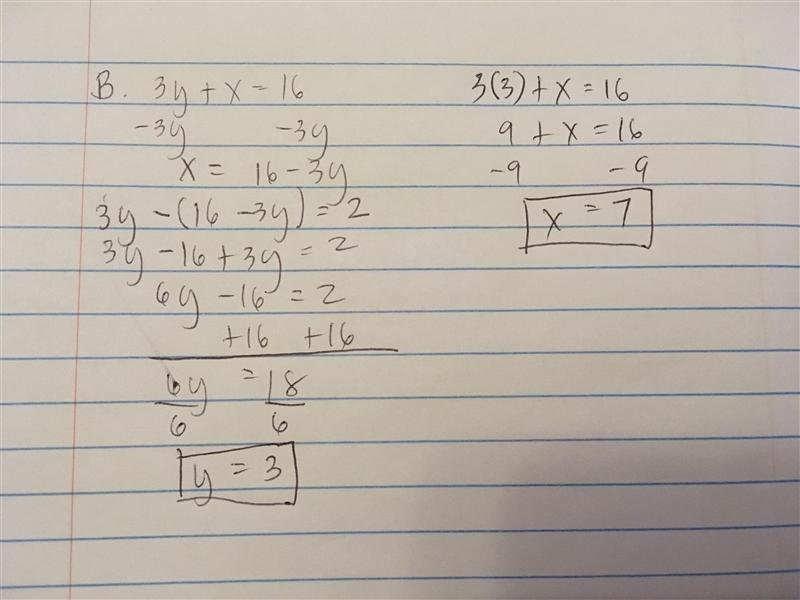 B. 3y + x = 16
-3y -3y
x = 16 - 3y
3y - (16 - 3y) = 2
3y - 16 + 3y = 2
6y - 16 = 2
+16 +16
6y = 18
6 6
y = 3
3(3) + x = 16
9 + x = 16
-9 -9
x = 7